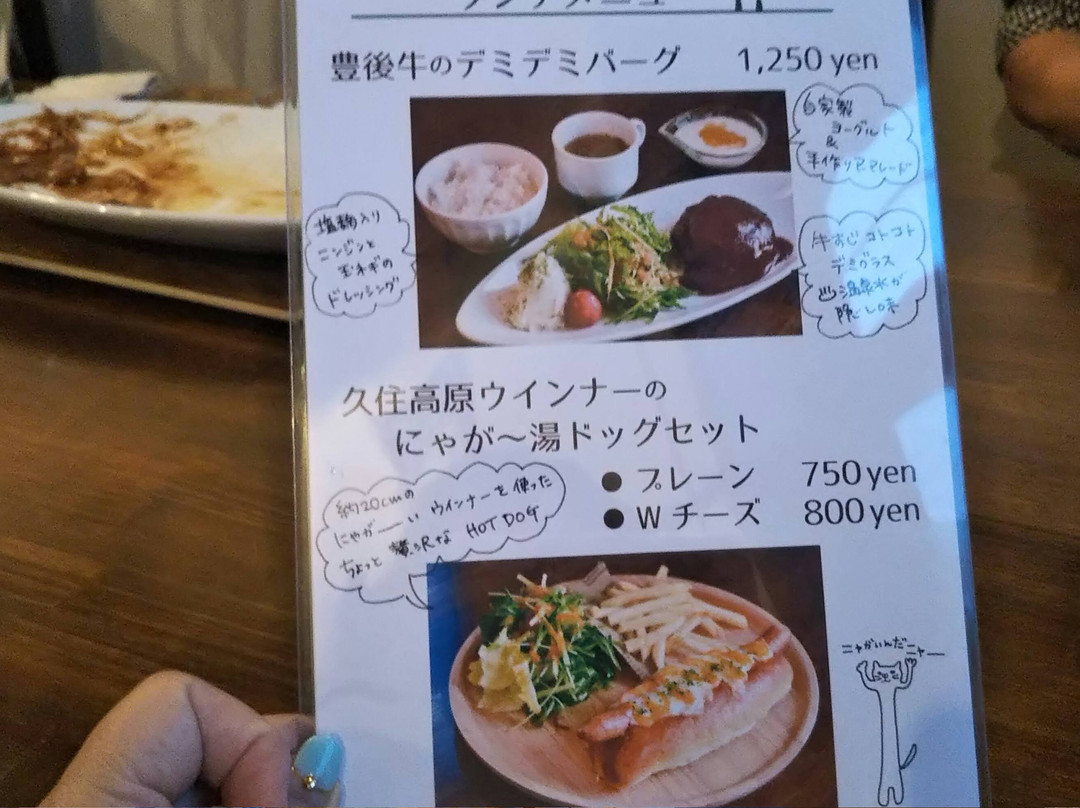 ランチメニュー
豊後牛のデミデミバーグ 1,250 yen
自家製
ヨーグルト
&
手作りママレード
塩麹入り
ニンジンと
玉ネギの
ドレッシング
牛すじコトコト
デミグラス
♨温泉水が
隠し味
久住高原ウインナーの
にゃが～湯ドッグセット
● プレーン 750 yen
● W チーズ 800 yen
約20cmの
にゃが――い ウインナーを使った
ちょっと 贅沢な HOT DOG
ニャがいんだニャー